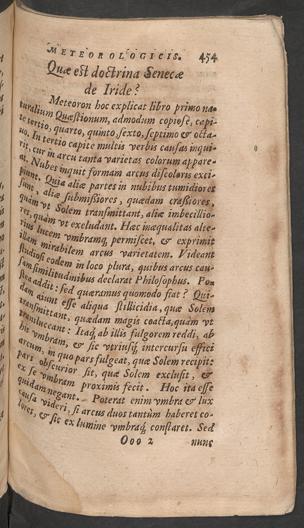 METEOROLOGICIS. 454
Quæ est doctrina Senecæ
de Iride?
Meteoron hoc explicat libro primo na-
turalium Quæstionum, admodum copiosè, capi-
te tertio, quarto, quinto, sexto, septimo & octa-
uo. In tertio capite multis verbis causas inqui-
rit, cur in arcu tanta varietas colorum appare-
at. Nubes inquit formam arcus discoloris exci-
piunt. Quia aliæ partes in nubibus tumidiores
sunt, aliæ submissiores, quædam crassiores,
quàm vt Solem transmittant, aliæ imbecillio-
res, quàm vt excludant. Hæc inæqualitas alte-
rius lucem vmbramq́; permiscet, & exprimit
illam mirabilem arcus varietatem. Videant
studiosi eodem in loco plura, quibus arcus cau-
sam similitudinibus declarat Philosophus. Po-
stea addit: sed quæramus quomodo fiat? Qui-
dam aiunt esse aliqua stillicidia, quæ Solem
transmittant, quædam magis coacta, quàm vt
transluceant: Itaq́; ab illis fulgorem reddi, ab
his vmbram, & sic vtriusq́; intercursu effici
arcum, in quo pars fulgeat, quæ Solem recipit:
pars obscurior sit, quæ Solem exclusit, &
ex se vmbram proximis fecit. Hoc ita esse
quidam negant. Poterat enim vmbra & lux
causa videri, si arcus duos tantùm haberet co-
lores, & sic ex lumine vmbraq́; constaret. Sed
Ooo 2 nunc